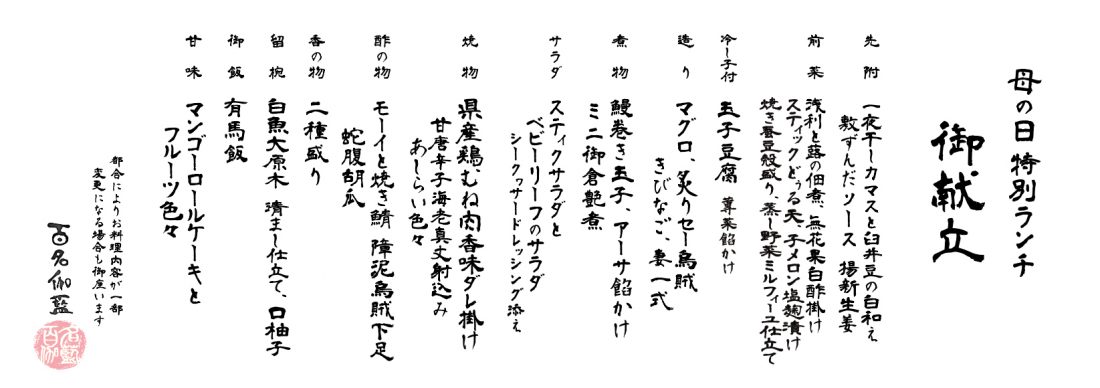 母の日 特別ランチ
御献立
先附
一夜干しカマスと臼井豆の白和え
敷ずんだソース 揚新生姜
前菜
浅利と蕗の佃煮、無花果白酢掛け
スティックどぅる天、子メロン塩麹漬け
焼き蚕豆殻盛り、蒸し野菜ミルフィーユ仕立て
冷し子付
玉子豆腐 蓴菜餡かけ
造り
マグロ、炙りセー烏賊
きびなご、妻一式
煮物
鰻巻き玉子、アーサ餡かけ
ミニ御倉艶煮
サラダ
スティクサラダと
ベビーリーフのサラダ
シークヮサードレッシング添え
焼物
県産鶏むね肉香味ダレ掛け
甘唐辛子海老真丈射込み
あしらい色々
酢の物
モーイと焼き鯖 障泥烏賊下足
蛇腹胡瓜
香の物
二種盛り
留椀
白魚大原木 清まし仕立て、口柚子
御飯
有馬飯
甘味
マンゴーロールケーキと
フルーツ色々
都合によりお料理内容が一部
変更になる場合も御座います
百名伽藍
百名伽藍